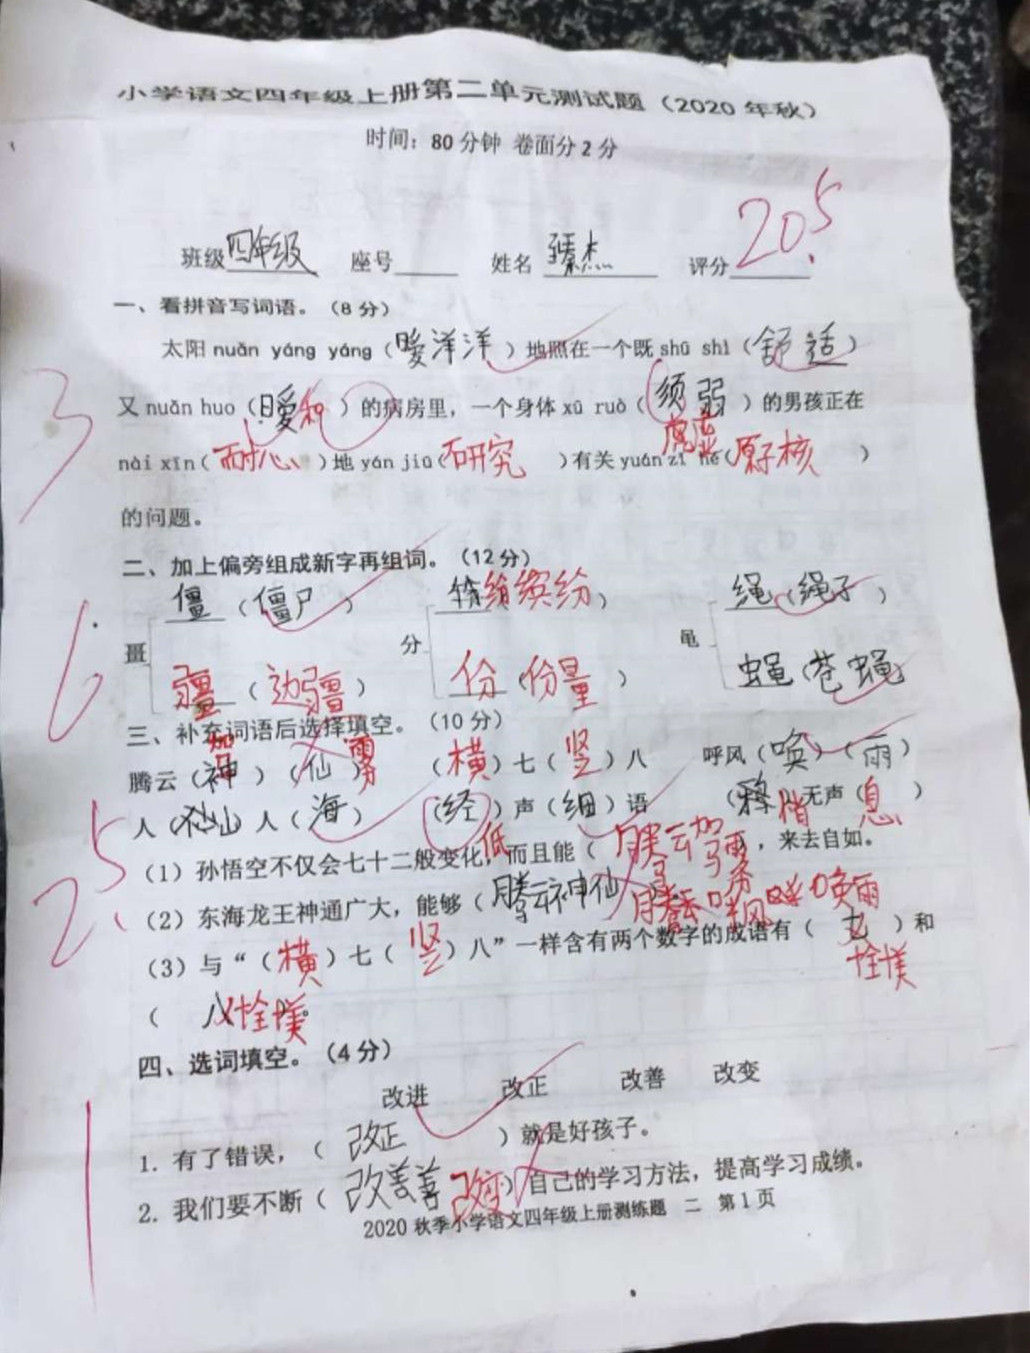 小学语文四年级上册第二单元测试题（2020 年秋）
时间：80 分钟 卷面分 2 分
20.5
班级 四年级 座号 姓名 臻杰 评分
一、看拼音写词语。（8 分）
太阳 nuǎn yáng yáng（暖洋洋）地照在一个既 shū shì（舒适）
3
又 nuǎn huo（暖和）的病房里，一个身体 xū ruò（须弱）的男孩正在
虚
nài xīn（耐心）地 yán jiū（研究）有关 yuán zǐ hé（原子核）
的问题。
二、加上偏旁组成新字再组词。（12 分）
僵（僵尸） 纷缤纷） 绳（绳子）
畺 分 黾
6
疆（边疆） 份（份量） 蝇（苍蝇）
三、补充词语后选择填空。（10 分）
驾 雾
腾云（神）（仙） （横）七（竖）八 呼风（唤）（雨）
人（仙山）人（海） （经）声（细）语 （悄无声（息）
低
2.5
（1）孙悟空不仅会七十二般变化，而且能（腾云驾雾，来去自如。
（2）东海龙王神通广大，能够（腾云神仙 呼风唤雨
（3）与“（横）七（竖）八”一样含有两个数字的成语有（七）和
（八
四、选词填空。（4 分）
改进 改正 改善 改变
1
1. 有了错误，（改正）就是好孩子。
2. 我们要不断（改善善 改变）自己的学习方法，提高学习成绩。
2020 秋季小学语文四年级上册测练题 二 第 1 页